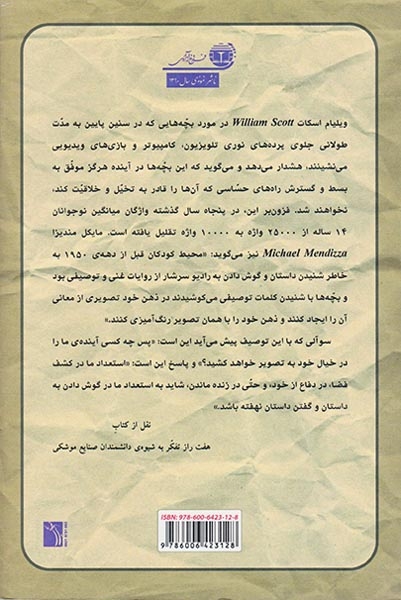 ناشر نمونه‌ی سال ۱۳۹۰
ویلیام اسکات William Scott در مورد بچّه‌هایی که در سنین پایین به مدّت
طولانی جلوی پرده‌های نوری تلویزیون، کامپیوتر و بازی‌های ویدیویی
می‌نشینند، هشدار می‌دهد و می‌گوید که این بچّه‌ها در آینده هرگز موفّق به
بسط و گسترش راه‌های حسّاسی که آن‌ها را قادر به تخیّل و خلاقیّت کند،
نخواهند شد. فزون‌بر این، در پنجاه سال گذشته واژگان میانگین نوجوانان
۱۴ ساله از ۲۵۰۰۰ واژه به ۱۰۰۰۰ واژه تقلیل یافته است. مایکل مندیزا
Michael Mendizza نیز می‌گوید: «محیط کودکان قبل از دهه‌ی ۱۹۵۰ به
خاطر شنیدن داستان و گوش دادن به رادیو سرشار از روایات غنی و توصیفی بود
و بچّه‌ها با شنیدن کلمات توصیفی می‌کوشیدند در ذهن خود تصویری از معانی
آن را ایجاد کنند و ذهن خود را با همان تصویر رنگ‌آمیزی کنند.»
سوآلی که با این توصیف پیش می‌آید این است: «پس چه کسی آینده‌ی ما را
در خیال خود به تصویر خواهد کشید؟» و پاسخ این است: «استعداد ما در کشف
فضا، در دفاع از خود، و حتّی در زنده ماندن، شاید به استعداد ما در گوش دادن به
داستان و گفتن داستان نهفته باشد.»
نقل از کتاب
هفت راز تفکّر به شیوه‌ی دانشمندان صنایع موشکی
ISBN: 978-600-6423-12-8
9 786006 423128